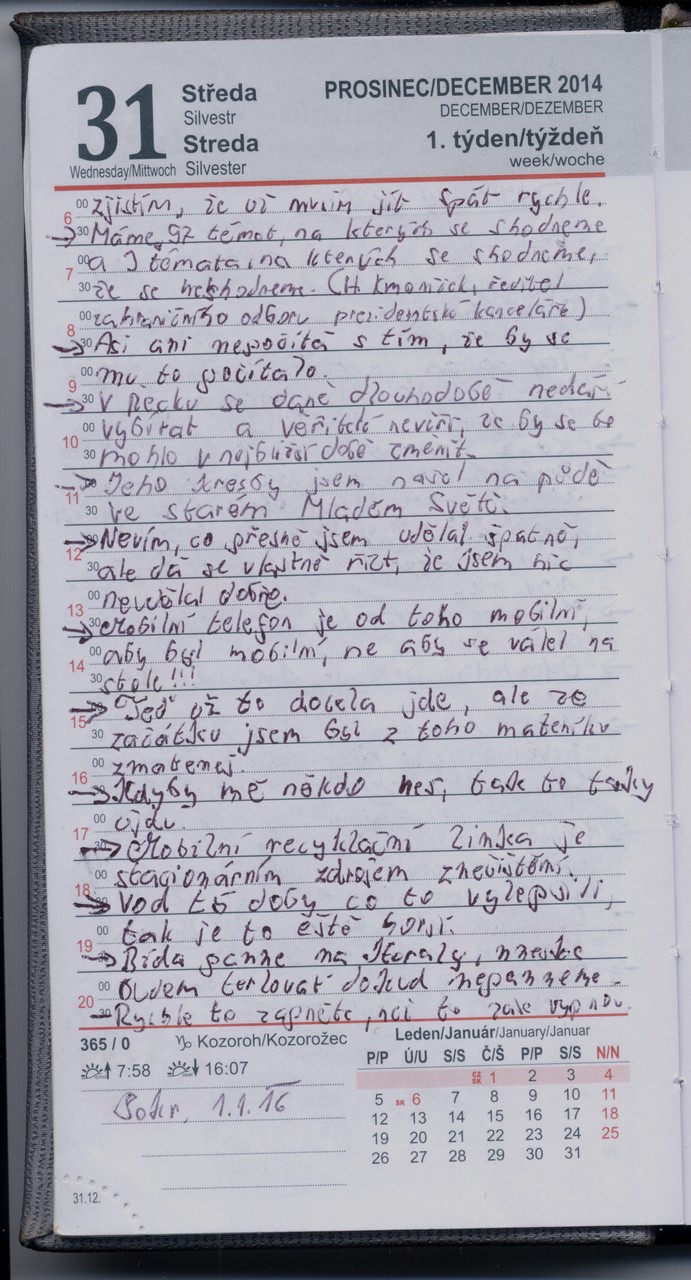 31
Středa
Silvestr
Streda
Silvester
Wednesday/Mittwoch
PROSINEC/DECEMBER 2014
DECEMBER/DEZEMBER
1. týden/týždeň
week/woche
zjistím, že už musím jít spát rychle.
→ Máme 97 témat, na kterých se shodneme
a 3 témata, na kterých se shodneme,
že se neshodneme. (H. Kmoníček, ředitel
zahraničního odboru prezidentské kanceláře)
→ Asi ani nepočítá s tím, že by se
mu to počítalo.
→ V Řecku se daně dlouhodobě nedaří
vybírat a veřitelé nevěří, že by se to
mohlo v nejbližší době změnit.
→ Jeho kresby jsem našel na půdě
ve starém Mladém Světě.
→ Nevím, co přesně jsem udělal špatně,
ale dá se vlastně říct, že jsem nic
neudělal dobře.
→ Mobilní telefon je od toho mobilní,
aby byl mobilní, ne aby se válel na
stole!!!
→ Teď už to docela jde, ale ze
začátku jsem byl z toho mateníku
zmatenej.
→ Kdyby mě někdo nes, tak to taky
ujdu.
→ Mobilní recyklační linka je
stacionárním zdrojem znečištění.
→ Vod té doby co to vylepšili,
tak je to eště horší.
→ Bída panne na literaly,
budem terlovat dokud nepanneme.
→ Rychle to zapněte, než to zase vypnou.
6
00
30
7
00
30
8
00
30
9
00
30
10
00
30
11
30
12
30
13
00
30
14
00
30
15
30
16
00
17
00
18
00
19
00
20
365 / 0
♑ Kozoroh/Kozorožec
7:58
16:07
1.1.16
31.12.
Leden/Január/January/Januar
P/P Ú/U S/S Č/Š P/P S/S N/N
CZ SK 1 2 3 4
5 SK 6 7 8 9 10 11
12 13 14 15 16 17 18
19 20 21 22 23 24 25
26 27 28 29 30 31